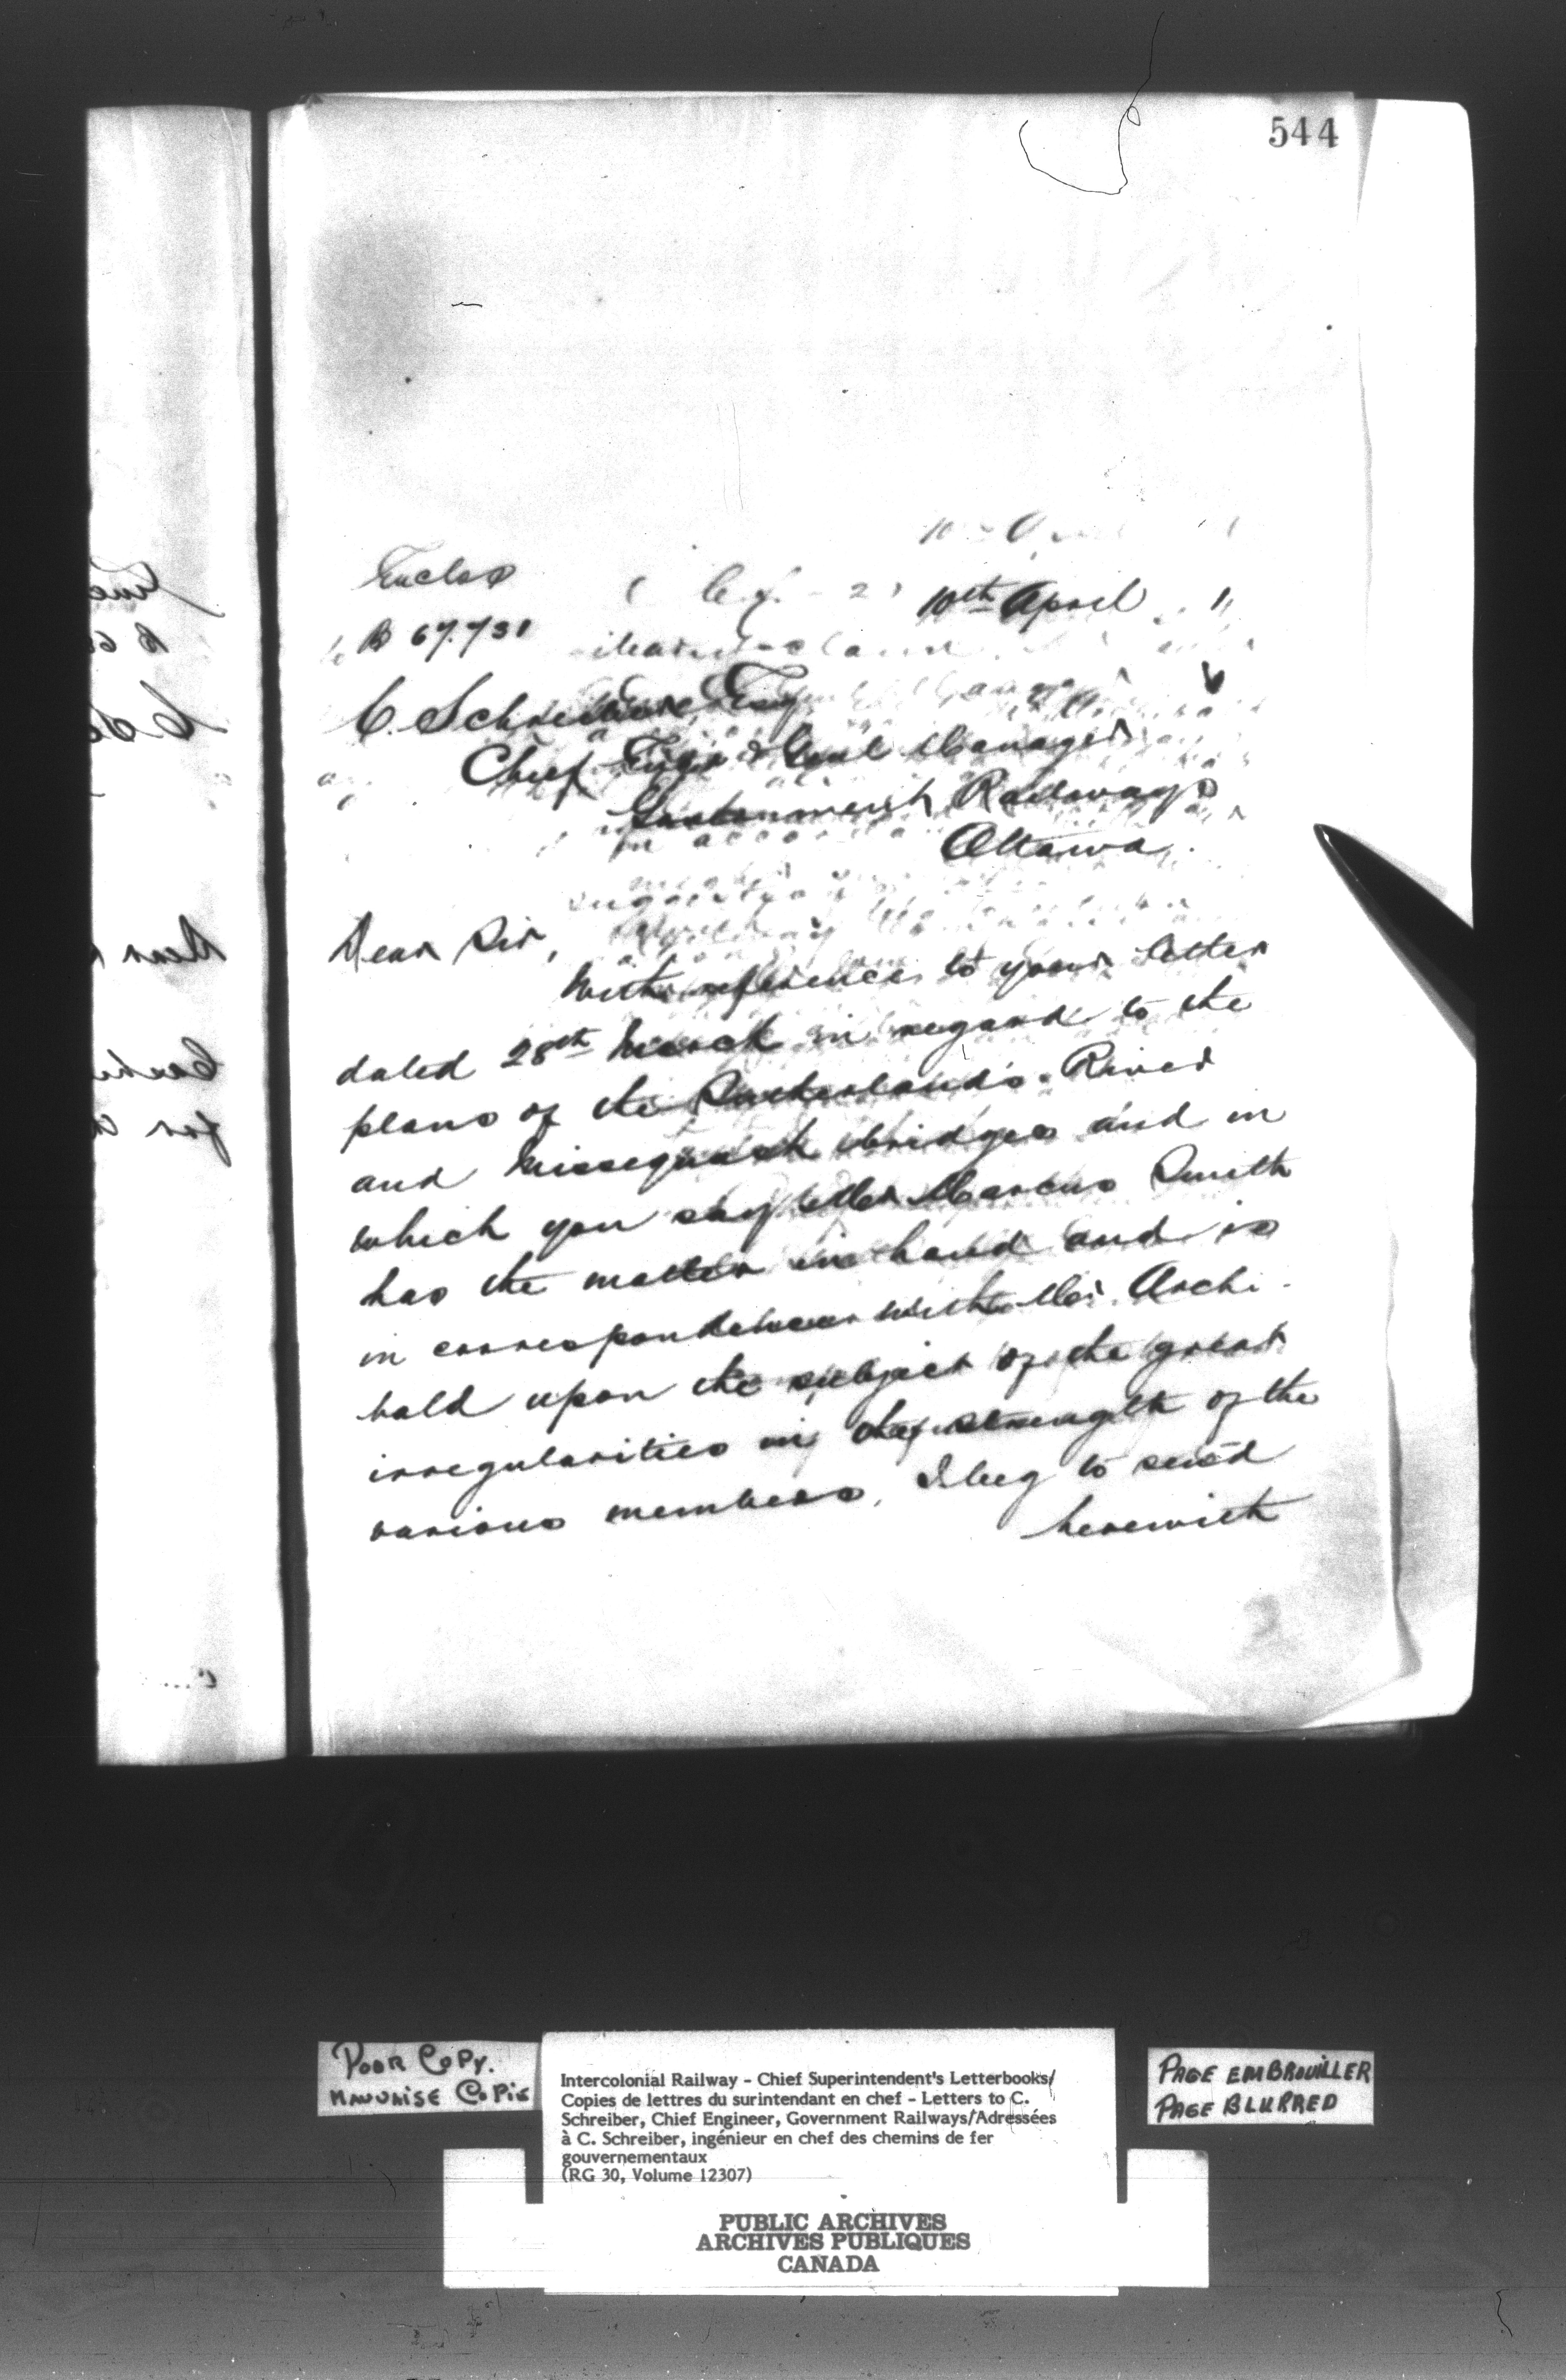 544
Enclos
10th April
B 67.731
C. Schreiber Esq
Chief Engr & Genl Manager
Government Railways
Ottawa.
Dear Sir,
With reference to your letter
dated 28th March in regard to the
plans of the Sutherlands River
and Missequash bridges and in
which you say Mr Marcus Smith
has the matter in hand and is
in correspondence with Mr. Archi-
bald upon the subject of the great
irregularities in the strength of the
various members, I beg to send
herewith
POOR COPY.
MAUVAISE COPIE
Intercolonial Railway - Chief Superintendent's Letterbooks/
Copies de lettres du surintendant en chef - Letters to C.
Schreiber, Chief Engineer, Government Railways/Adressées
à C. Schreiber, ingénieur en chef des chemins de fer
gouvernementaux
(RG 30, Volume 12307)
PUBLIC ARCHIVES
ARCHIVES PUBLIQUES
CANADA
PAGE EMBROUILLER
PAGE BLURRED